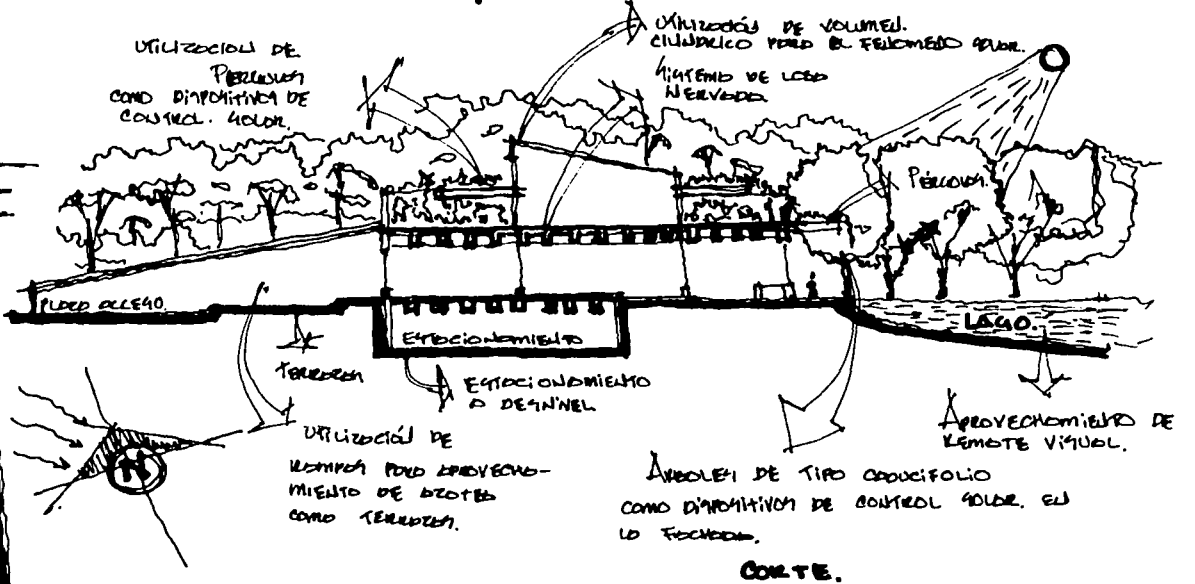 UTILIZACION DE
PERGOLAS
COMO DISPOSITIVOS DE
CONTROL. SOLAR.
UTILIZACIÓN DE VOLUMEN.
CILINDRICO PARA EL FENOMENO SOLAR.
SISTEMA DE LOSA
NERVADA.
PÉRGOLAS.
PLAZA ACCESO.
ESTACIONAMIENTO
LAGO.
TERRAZAS
ESTACIONAMIENTO
A DESNIVEL
UTILIZACIÓN DE
RAMPAS PARA APROVECHA-
MIENTO DE AZOTEA
COMO TERRAZAS.
N
APROVECHAMIENTO DE
REMATE VISUAL.
ÁRBOLES DE TIPO CADUCIFOLIO
COMO DISPOSITIVOS DE CONTROL SOLAR. EN
LA FACHADA.
CORTE.